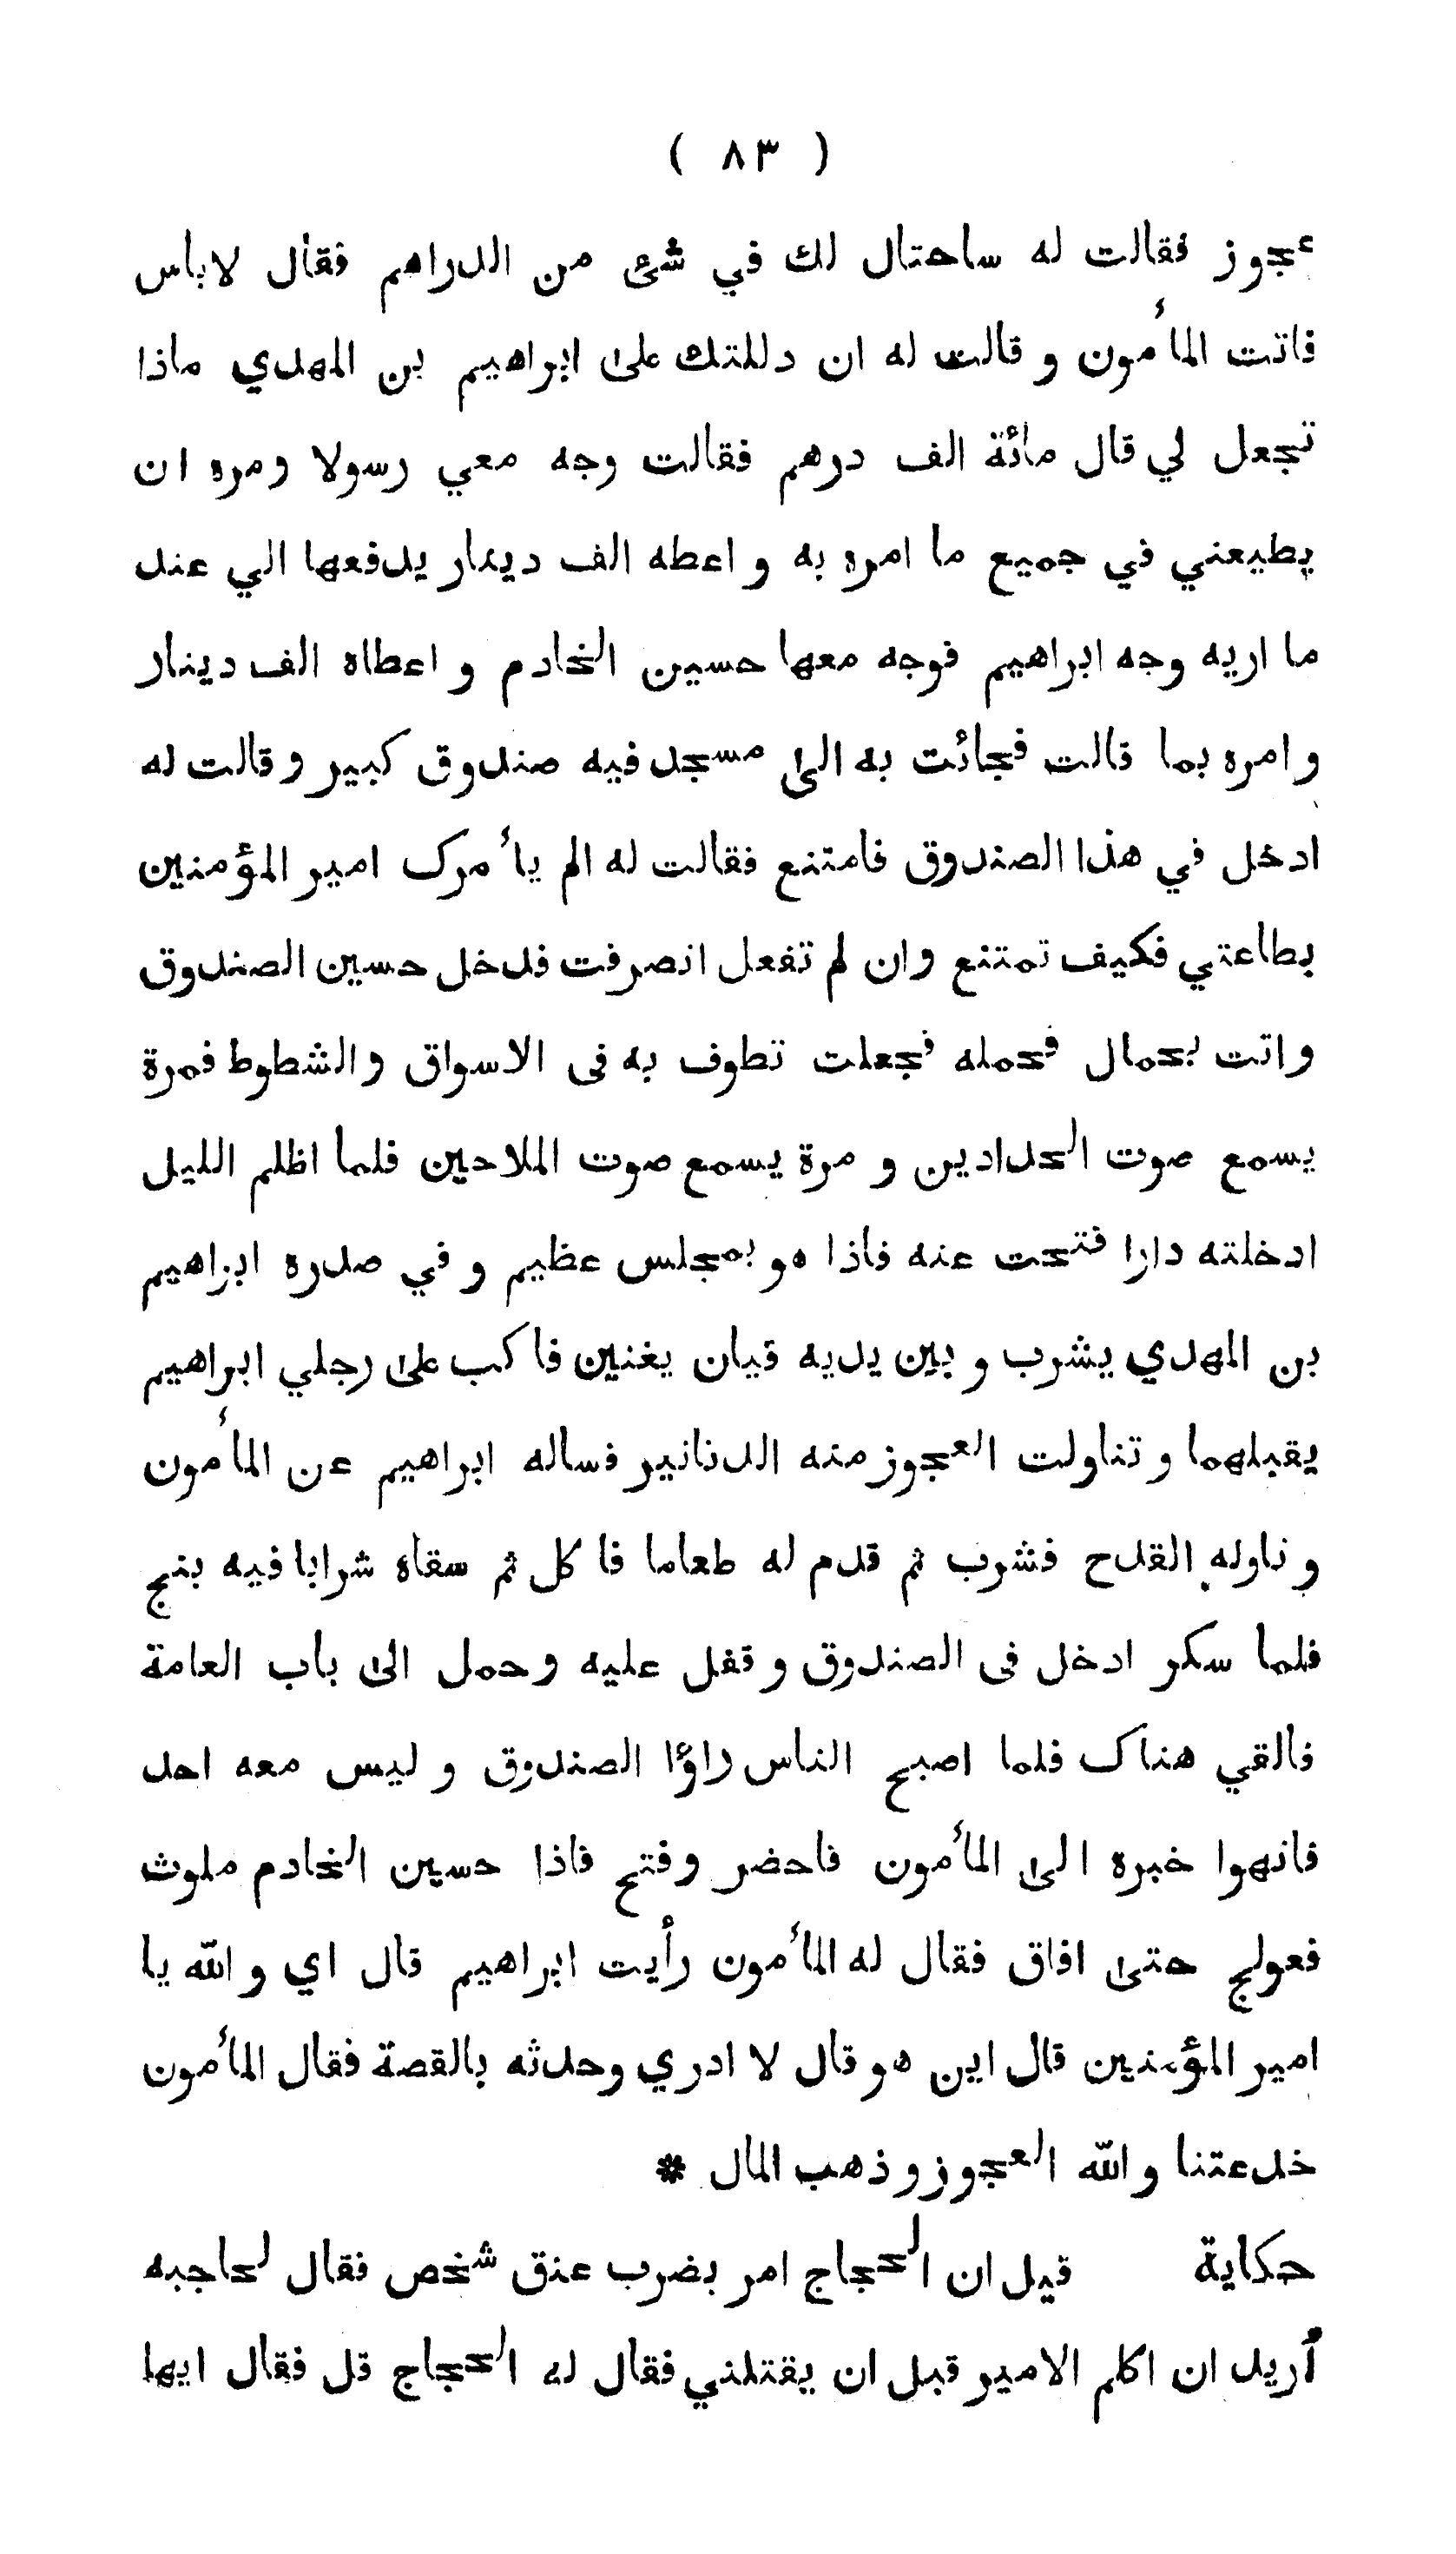 ( ٨٣ )
عجوز فقالت له ساحتال لك في شئ من الدراهم فقال لاباس
فاتت المأمون و قالت له ان دللتك على ابراهيم بن المهدي ماذا
تجعل لي قال مائة الف درهم فقالت وجه معي رسولا ومره ان
يطيعني في جميع ما امره به و اعطه الف دينار يدفعها الي عند
ما اريه وجه ابراهيم فوجه معها حسين الخادم و اعطاه الف دينار
و امره بما قالت فجائت به الى مسجد فيه صندوق كبير و قالت له
ادخل في هذا الصندوق فامتنع فقالت له الم يأمرك امير المؤمنين
بطاعتي فكيف تمتنع وان لم تفعل انصرفت فدخل حسين الصندوق
و اتت بحمال فحمله فجعلت تطوف به فى الاسواق والشطوط فمرة
يسمع صوت الحدادين و مرة يسمع صوت الملاحين فلما اظلم الليل
ادخلته دارا فتحت عنه فاذا هو بمجلس عظيم و في صدره ابراهيم
بن المهدي يشرب و بين يديه قيان يغنين فاكب على رجلي ابراهيم
يقبلهما و تناولت العجوز منه الدنانير فساله ابراهيم عن المأمون
و ناوله القدح فشرب ثم قدم له طعاما فاكل ثم سقاه شرابا فيه بنج
فلما سكر ادخل فى الصندوق و قفل عليه وحمل الى باب العامة
فالقي هناك فلما اصبح الناس راؤا الصندوق و ليس معه احد
فانهوا خبره الى المأمون فاحضر وفتح فاذا حسين الخادم ملوث
فعولج حتى افاق فقال له المأمون رأيت ابراهيم قال اي و الله يا
امير المؤمنين قال اين هو قال لا ادري وحدثه بالقصة فقال المأمون
خدعتنا و الله العجوز و ذهب المال *
حكاية قيل ان الحجاج امر بضرب عنق شخص فقال لحاجبه
أريد ان اكلم الامير قبل ان يقتلني فقال له الحجاج قل فقال ايها